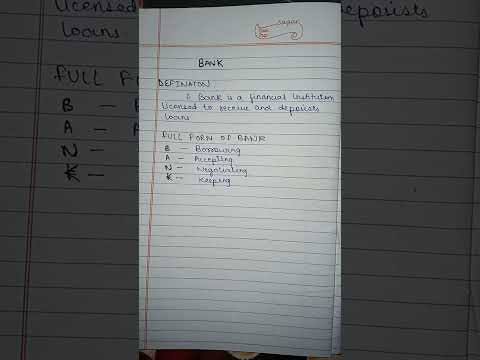 sagar
BANK
DEFINATON:
A Bank is a financial institution
licensed to receive and deposists
loans
FULL FORM OF BANK
B - Borrowing
A - Accepting
N - Negotiating
K - Keeping
licensed
deposists
loans
FULL FO
B -
A - A
N -
K -